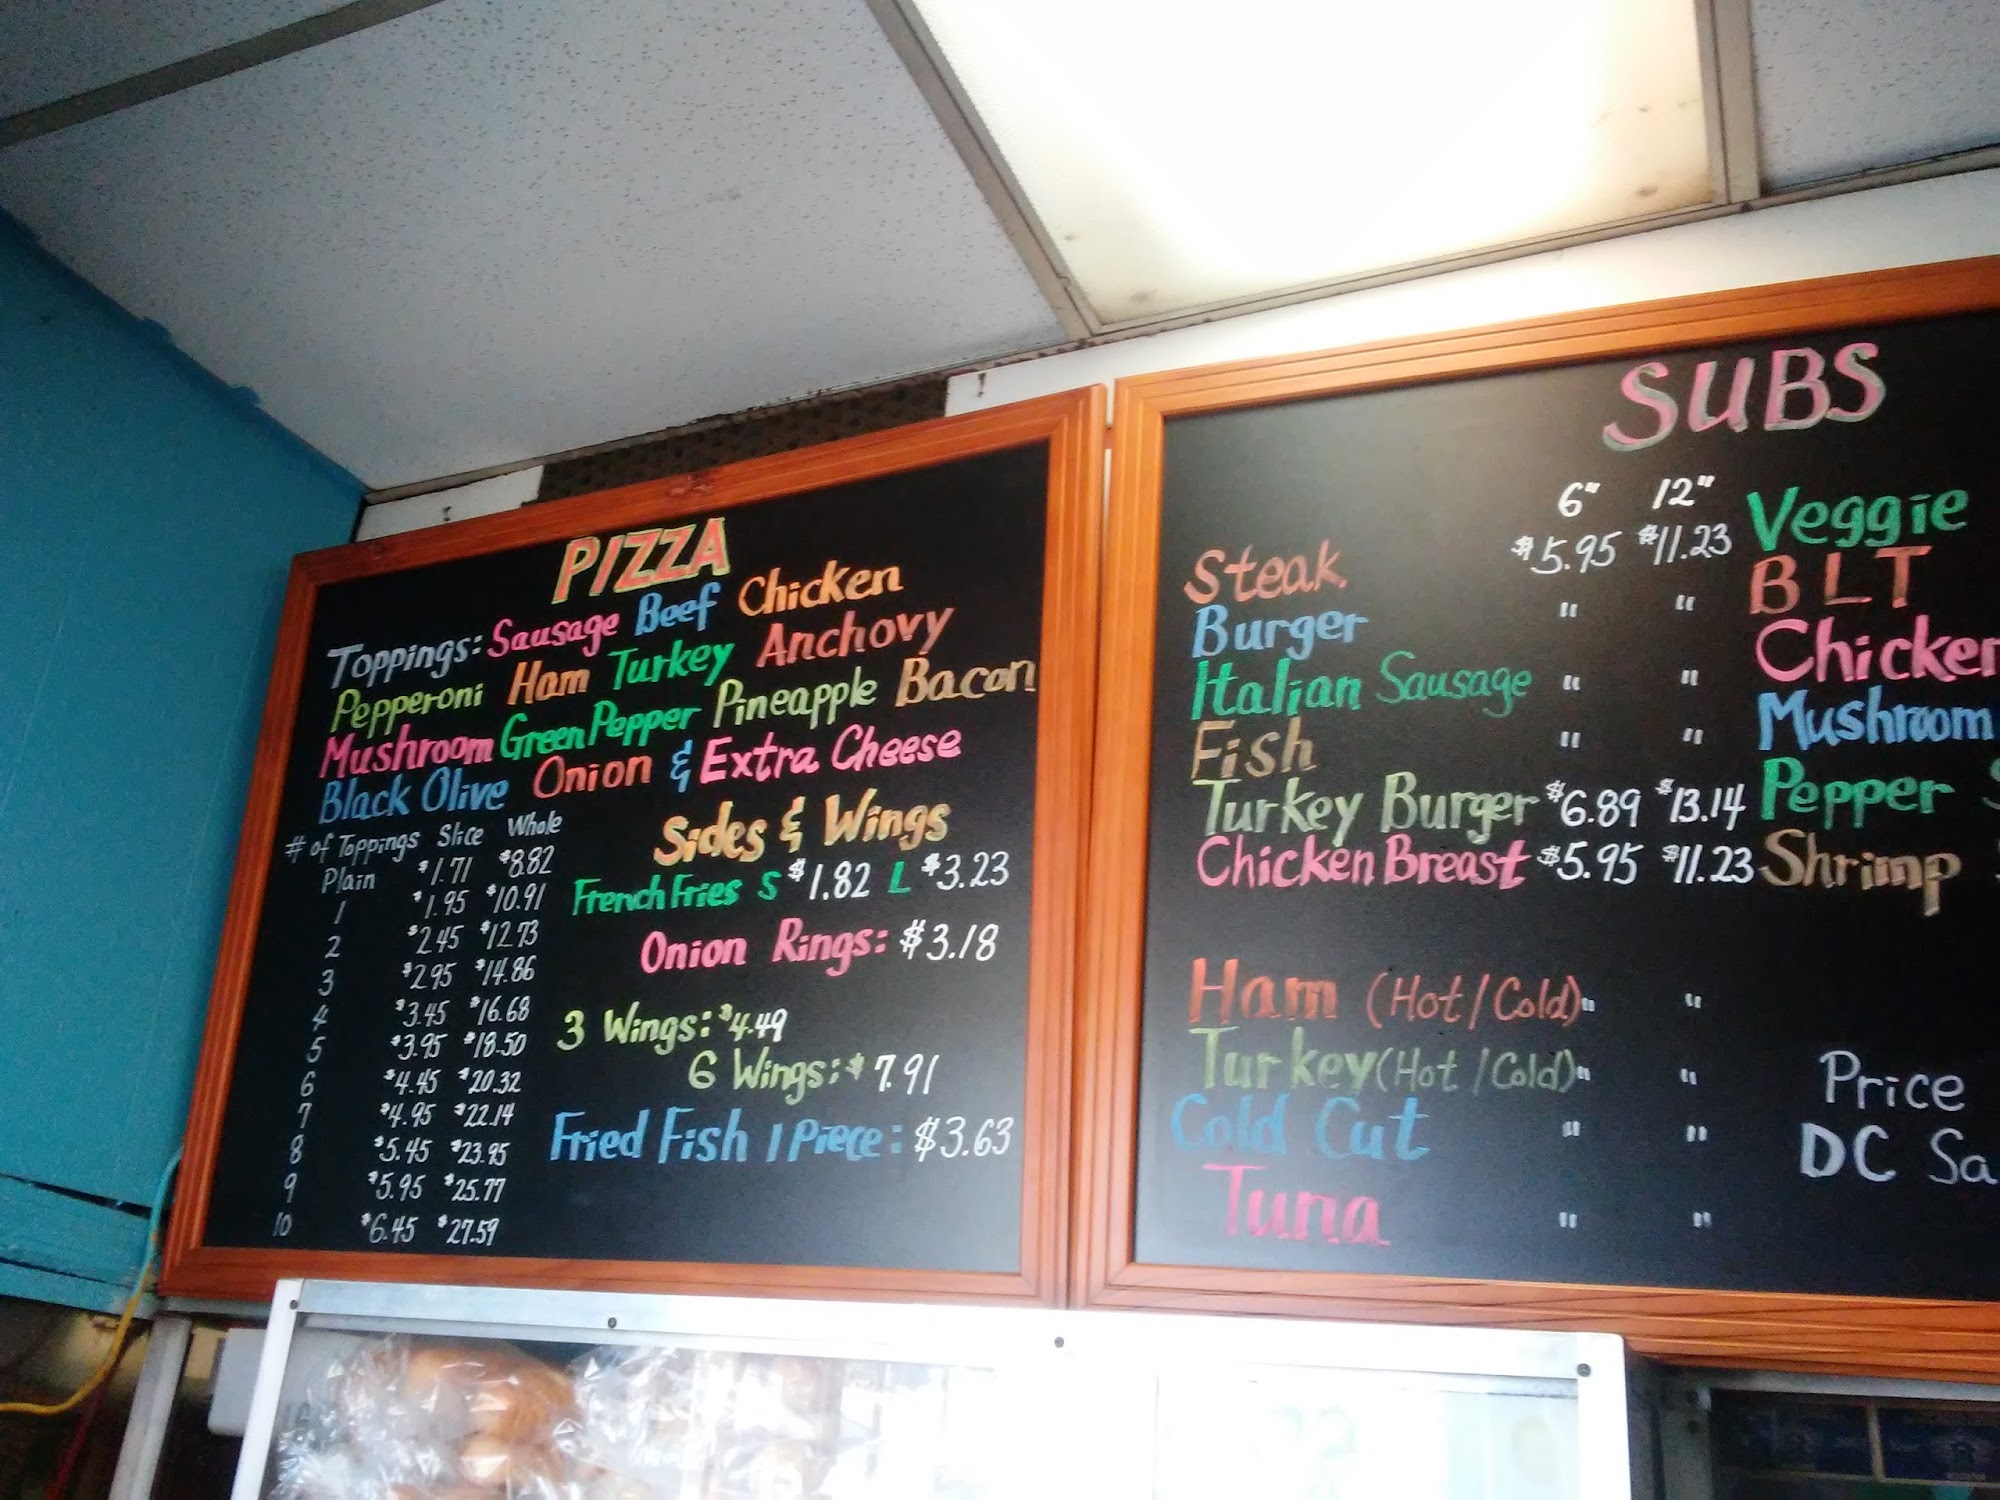 PIZZA
Toppings: Sausage Beef Chicken
Pepperoni Ham Turkey Anchovy
Mushroom Green Pepper Pineapple Bacon
Black Olive Onion & Extra Cheese
# of Toppings Slice Whole
Plain $1.71 $8.82
1 $1.95 $10.91
2 $2.45 $12.73
3 $2.95 $14.86
4 $3.45 $16.68
5 $3.95 $18.50
6 $4.45 $20.32
7 $4.95 $22.14
8 $5.45 $23.95
9 $5.95 $25.77
10 $6.45 $27.59
Sides & Wings
French Fries S $1.82 L $3.23
Onion Rings: $3.18
3 Wings: $4.49
6 Wings: $7.91
Fried Fish 1 Piece: $3.63
SUBS
6" 12"
Steak $5.95 $11.23
Burger " "
Italian Sausage " "
Fish " "
Turkey Burger $6.89 $13.14
Chicken Breast $5.95 $11.23
Ham (Hot/Cold) " "
Turkey (Hot/Cold) " "
Cold Cut " "
Tuna " "
Veggie
BLT
Chicken
Mushroom
Pepper
Shrimp
Price
DC Sa